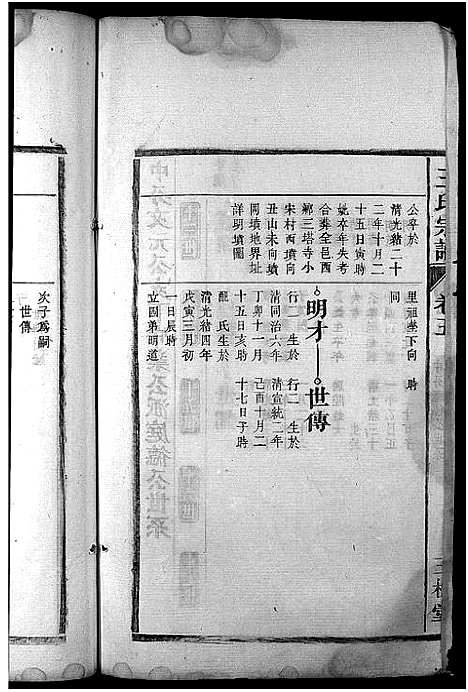 王氏宗譜
卷五
三槐堂
公卒於
清光緒二十
二年十月二
十五日寅時
妣卒年失考
合葬全邑西
鄉三塔寺小
宋村西墳向
丑山未向墳
同墳地界址
詳明墳圖
里祖塋下向 時
同
明才 世傳
行二 生於
清同治六年
丁卯十一月
十五日亥時
龍 氏生於
清光緒四年
戊寅三月初
一日辰時
立因弟明道
行二 生於
清宣統二年
己酉十月二
十七日子時
次子爲嗣
世傳